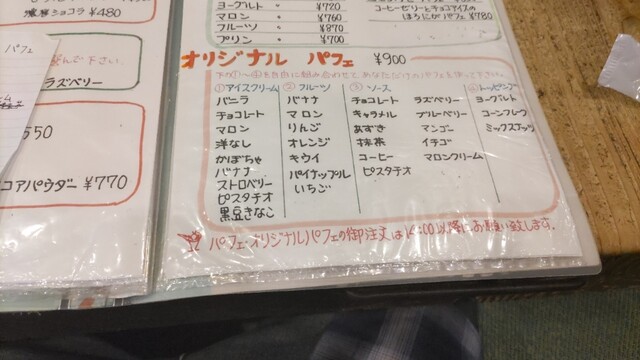 濃厚ショコラ ¥480
パフェ
んで下さい。
ラズベリー
550
コアパウダー ¥770
ヨーグルト 〃 ¥720
マロン 〃 ¥760
フルーツ 〃 ¥870
プリン 〃 ¥700
コーヒーゼリーとチョコアイスの
ほろにがパフェ ¥780
オリジナル パフェ ¥900
下の①〜④を自由に組み合わせて あなただけのパフェを作って下さい。
①アイスクリーム
バニラ
チョコレート
マロン
洋なし
かぼちゃ
バナナ
ストロベリー
ピスタチオ
黒豆きなこ
②フルーツ
バナナ
マロン
りんご
オレンジ
キウイ
パイナップル
いちご
③ソース
チョコレート ラズベリー
キャラメル ブルーベリー
あずき マンゴー
抹茶 イチゴ
コーヒー マロンクリーム
ピスタチオ
④トッピング
ヨーグルト
コーンフレーク
ミックスナッツ
パフェ・オリジナルパフェの御注文は14:00以降にお願い致します。